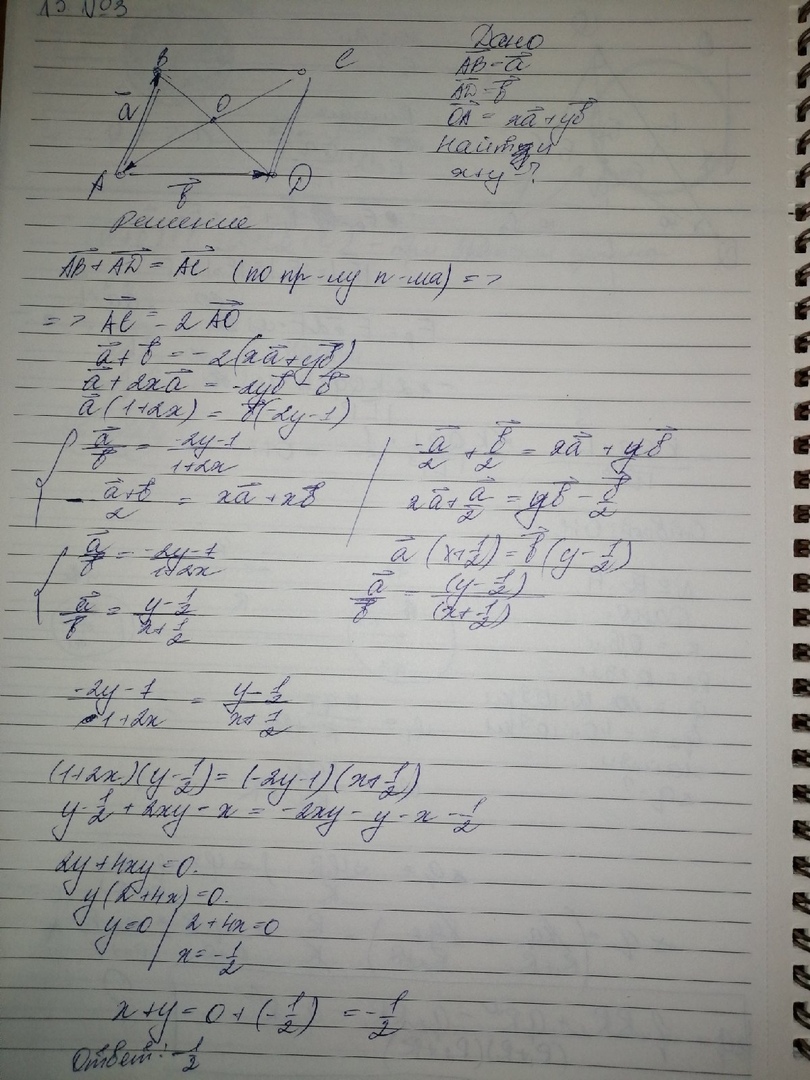 13 №3
B
C
Дано
a⃗
O
A
b⃗
D
AB⃗ = a⃗
AD⃗ = b⃗
OA⃗ = xa⃗ + yb⃗
Найти
x+y-?
Решение
AB⃗ + AD⃗ = AC⃗ (по пр-лу п-ма) =>
=> AC⃗ = 2AO⃗
a⃗ + b⃗ = -2(xa⃗ + yb⃗)
a⃗ + 2xa⃗ = -2yb⃗ - b⃗
a⃗(1+2x) = b⃗(-2y-1)
{ a⃗/b⃗ = (-2y-1)/(1+2x)
- (a⃗+b⃗)/2 = xa⃗ + xb⃗
-a⃗/2 + b⃗/2 = xa⃗ + yb⃗
xa⃗ + a⃗/2 = yb⃗ - b⃗/2
a⃗(x+1/2) = b⃗(y-1/2)
a⃗/b⃗ = (y-1/2)/(x+1/2)
{ a⃗/b⃗ = (-2y-1)/(1+2x)
a⃗/b⃗ = (y-1/2)/(x+1/2)
(-2y-1)/(1+2x) = (y-1/2)/(x+1/2)
(1+2x)(y-1/2) = (-2y-1)(x+1/2)
y-1/2+2xy-x = -2xy-y-x-1/2
2y+4xy=0.
y(2+4x)=0.
y=0 | 2+4x=0
x=-1/2
x+y=0+(-1/2) = -1/2
Ответ: -1/2